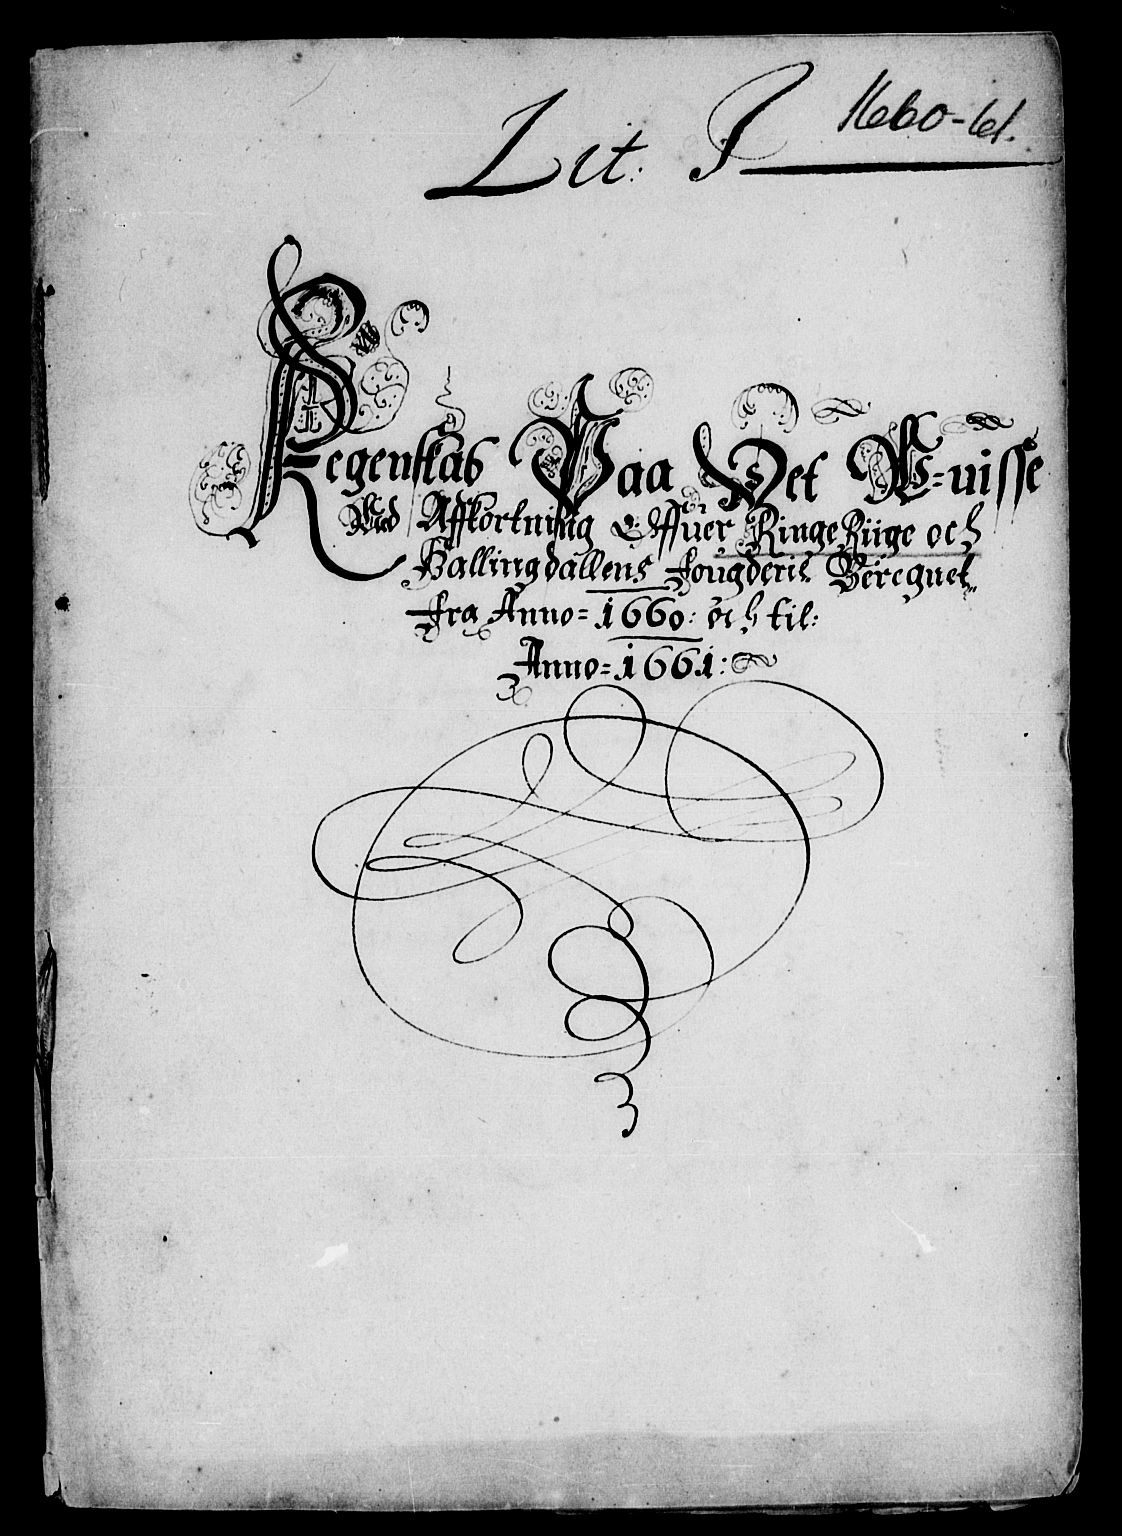 1660-61.
Lit: J
Regenskab Paa Det W-uisse
Med Affkortning Offuer RingeRiige och
Hallingdallens fougderie Beregnet
fra Anno = 1660: och til:
Anno = 1661: